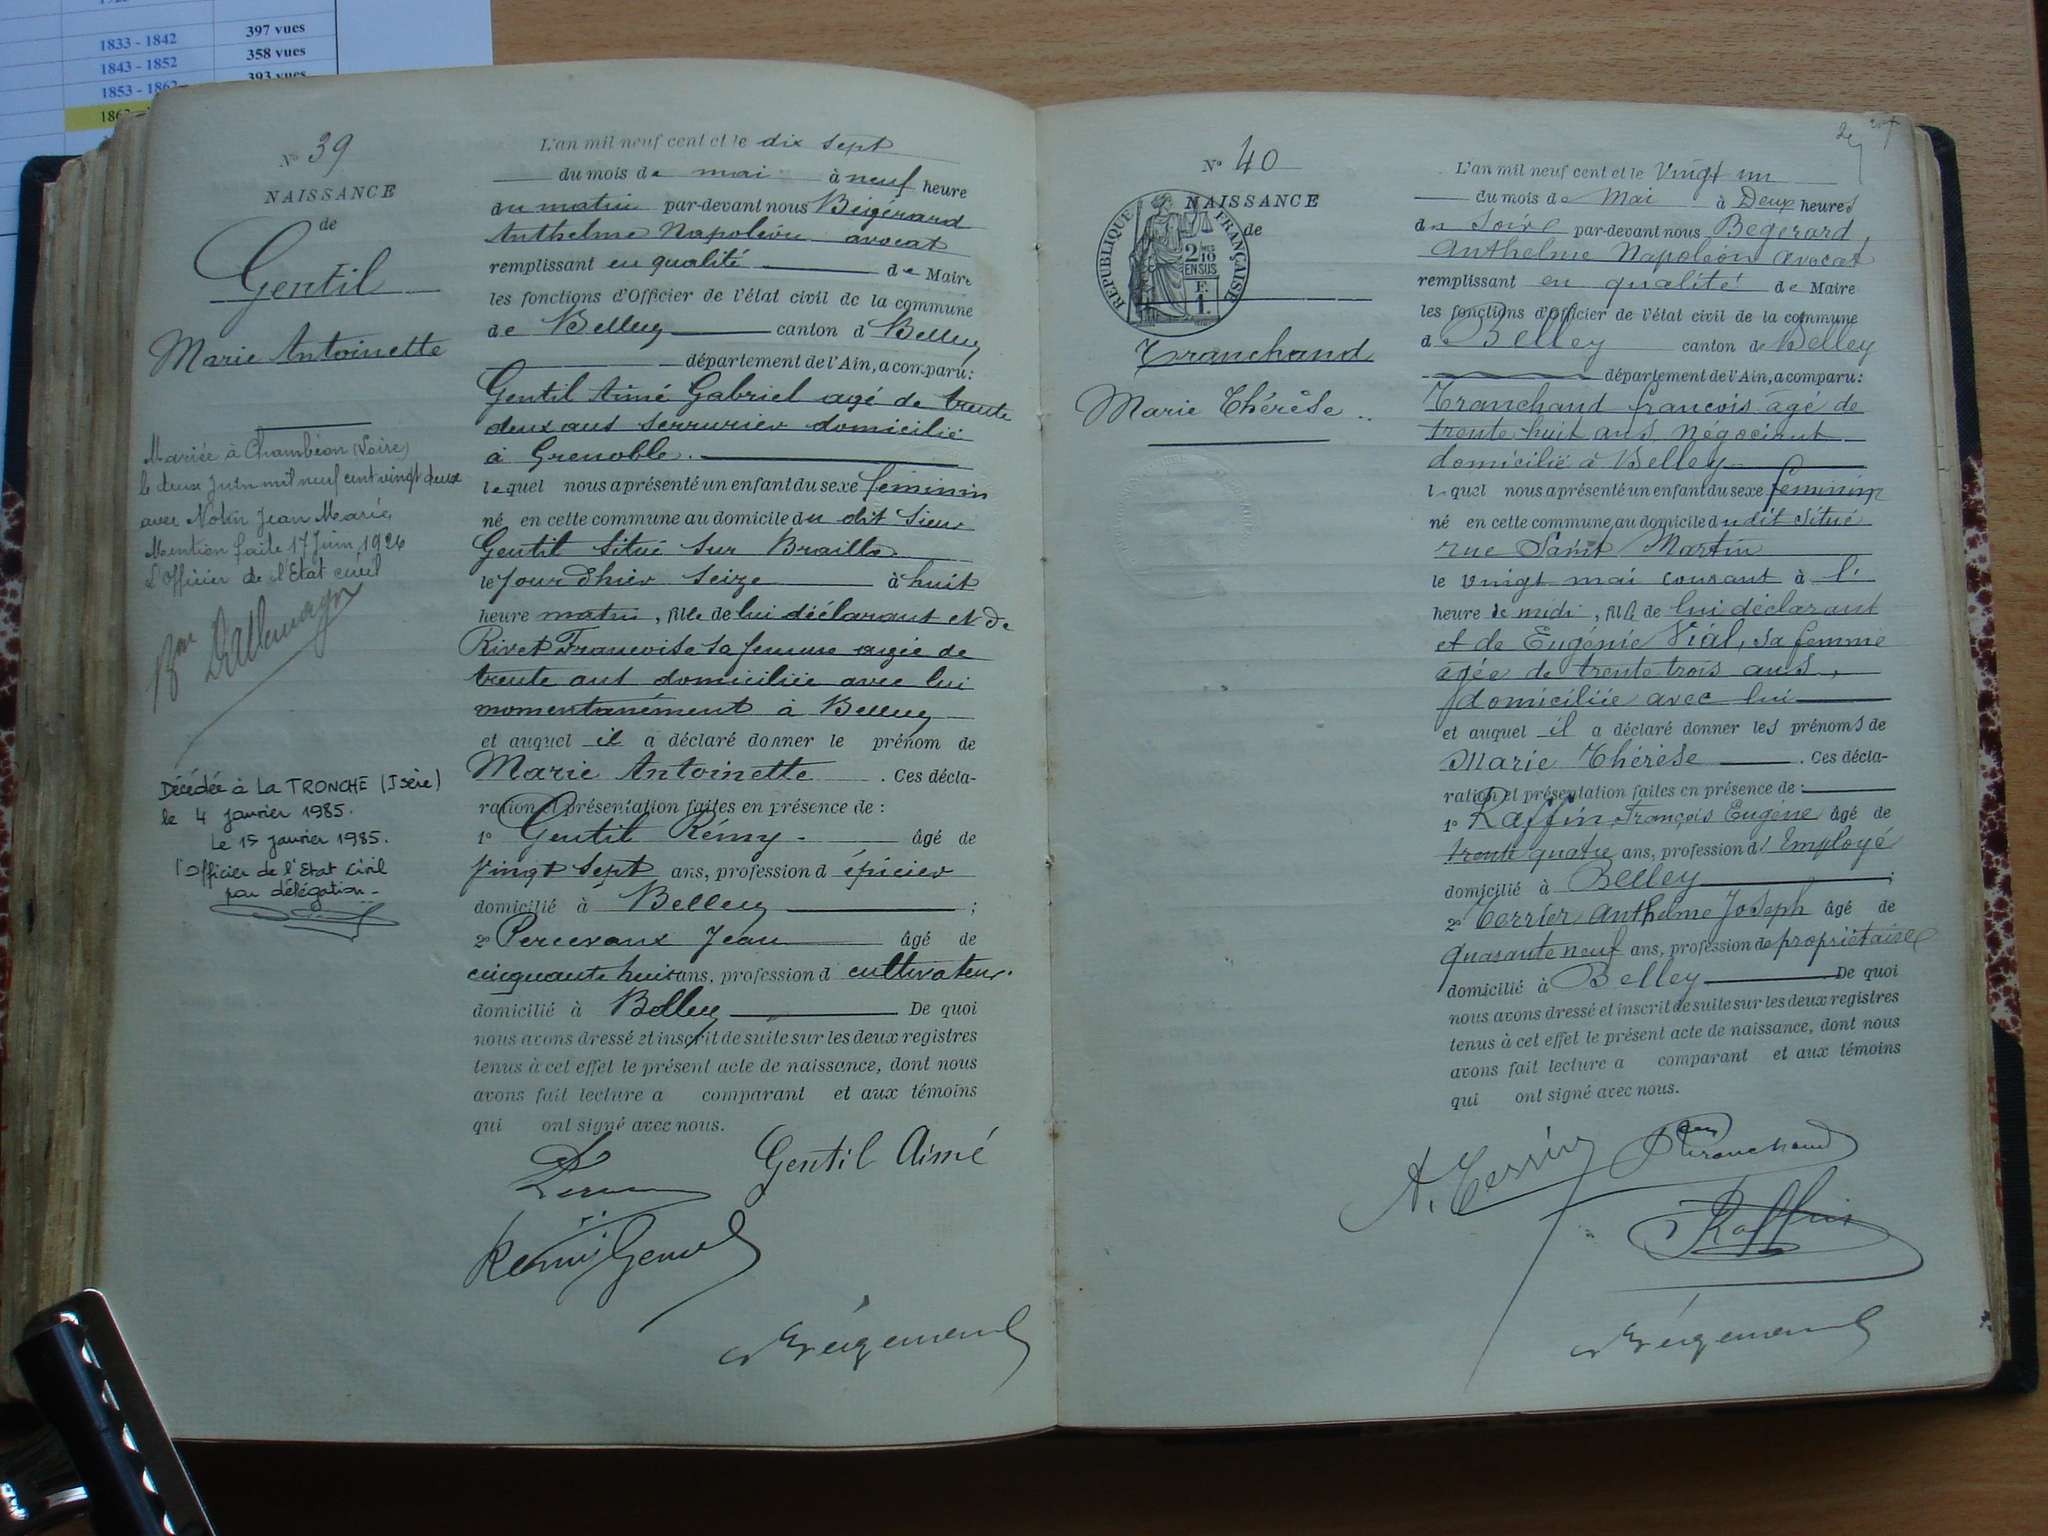 1833 - 1842 397 vues
1843 - 1852 358 vues
1853 - 1862 393 vues
N° 39
NAISSANCE
de
Gentil
Marie Antoinette
Mariée à Chambéon (Loire)
le deux juin mil neuf cent vingt deux
avec Notin Jean Marie
Mention faite 17 Juin 1924
L'Officier de l'Etat civil
Décédée à LA TRONCHE (Isère)
le 4 janvier 1985.
Le 15 janvier 1985.
l'Officier de l'Etat Civil
par délégation -
L'an mil neuf cent et le dix sept
du mois de mai à neuf heure
du matin par-devant nous Bégérard
Anthelme Napoléon avocat
remplissant en qualité de Maire
les fonctions d'Officier de l'état civil de la commune
de Belley canton d Belley
département de l'Ain, a comparu:
Gentil Aimé Gabriel agé de trente
deux ans serrurier domicilié
à Grenoble.
lequel nous a présenté un enfant du sexe féminin
né en cette commune au domicile du dit Sieur
Gentil situé sur Braille
le jour d'hier seize à huit
heure matin, fille de lui déclarant et de
Rivet Francoise sa femme agée de
trente ans domiciliée avec lui
momentanément à Belley
et auquel il a déclaré donner le prénom de
Marie Antoinette. Ces décla-
ration et présentation faites en présence de :
1° Gentil Rémy - âgé de
vingt sept ans, profession d épicier
domicilié à Belley ;
2° Percevaux Jean âgé de
cinquante huit ans, profession d cultivateur.
domicilié à Belley De quoi
nous avons dressé et inscrit de suite sur les deux registres
tenus à cet effet le présent acte de naissance, dont nous
avons fait lecture a comparant et aux témoins
qui ont signé avec nous.
Gentil Aimé
Remi Gentil
N° 40
NAISSANCE
de
REPUBLIQUE FRANÇAISE
2 MES
10
EN SUS
F.
1.
Tranchand
Marie Thérèse
L'an mil neuf cent et le vingt un
du mois de Mai à Deux heures
du Soir par-devant nous Begerard
Anthelme Napoléon avocat
remplissant en qualité de Maire
les fonctions d'Officier de l'état civil de la commune
de Belley canton de Belley
département de l'Ain, a comparu:
Tranchand françois âgé de
trente huit ans, Négociant
domicilié à Belley
l quel nous a présenté un enfant du sexe féminin
né en cette commune, au domicile du dit situé
rue Saint Martin
le vingt mai courant à l'
heure de midi, fille de lui déclarant
et de Eugénie Vial, sa femme
agée de trente trois ans,
domiciliée avec lui
et auquel il a déclaré donner les prénoms de
Marie Thérèse. Ces décla-
ration et présentation faites en présence de :
1° Raffin, François Eugène âgé de
trente quatre ans, profession d' Employé
domicilié à Belley ;
2° Terrier Anthelme Joseph âgé de
quarante neuf ans, profession de propriétaire
domicilié à Belley De quoi
nous avons dressé et inscrit de suite sur les deux registres
tenus à cet effet le présent acte de naissance, dont nous
avons fait lecture a comparant et aux témoins
qui ont signé avec nous.
A. Terrier Tranchand
Raffin